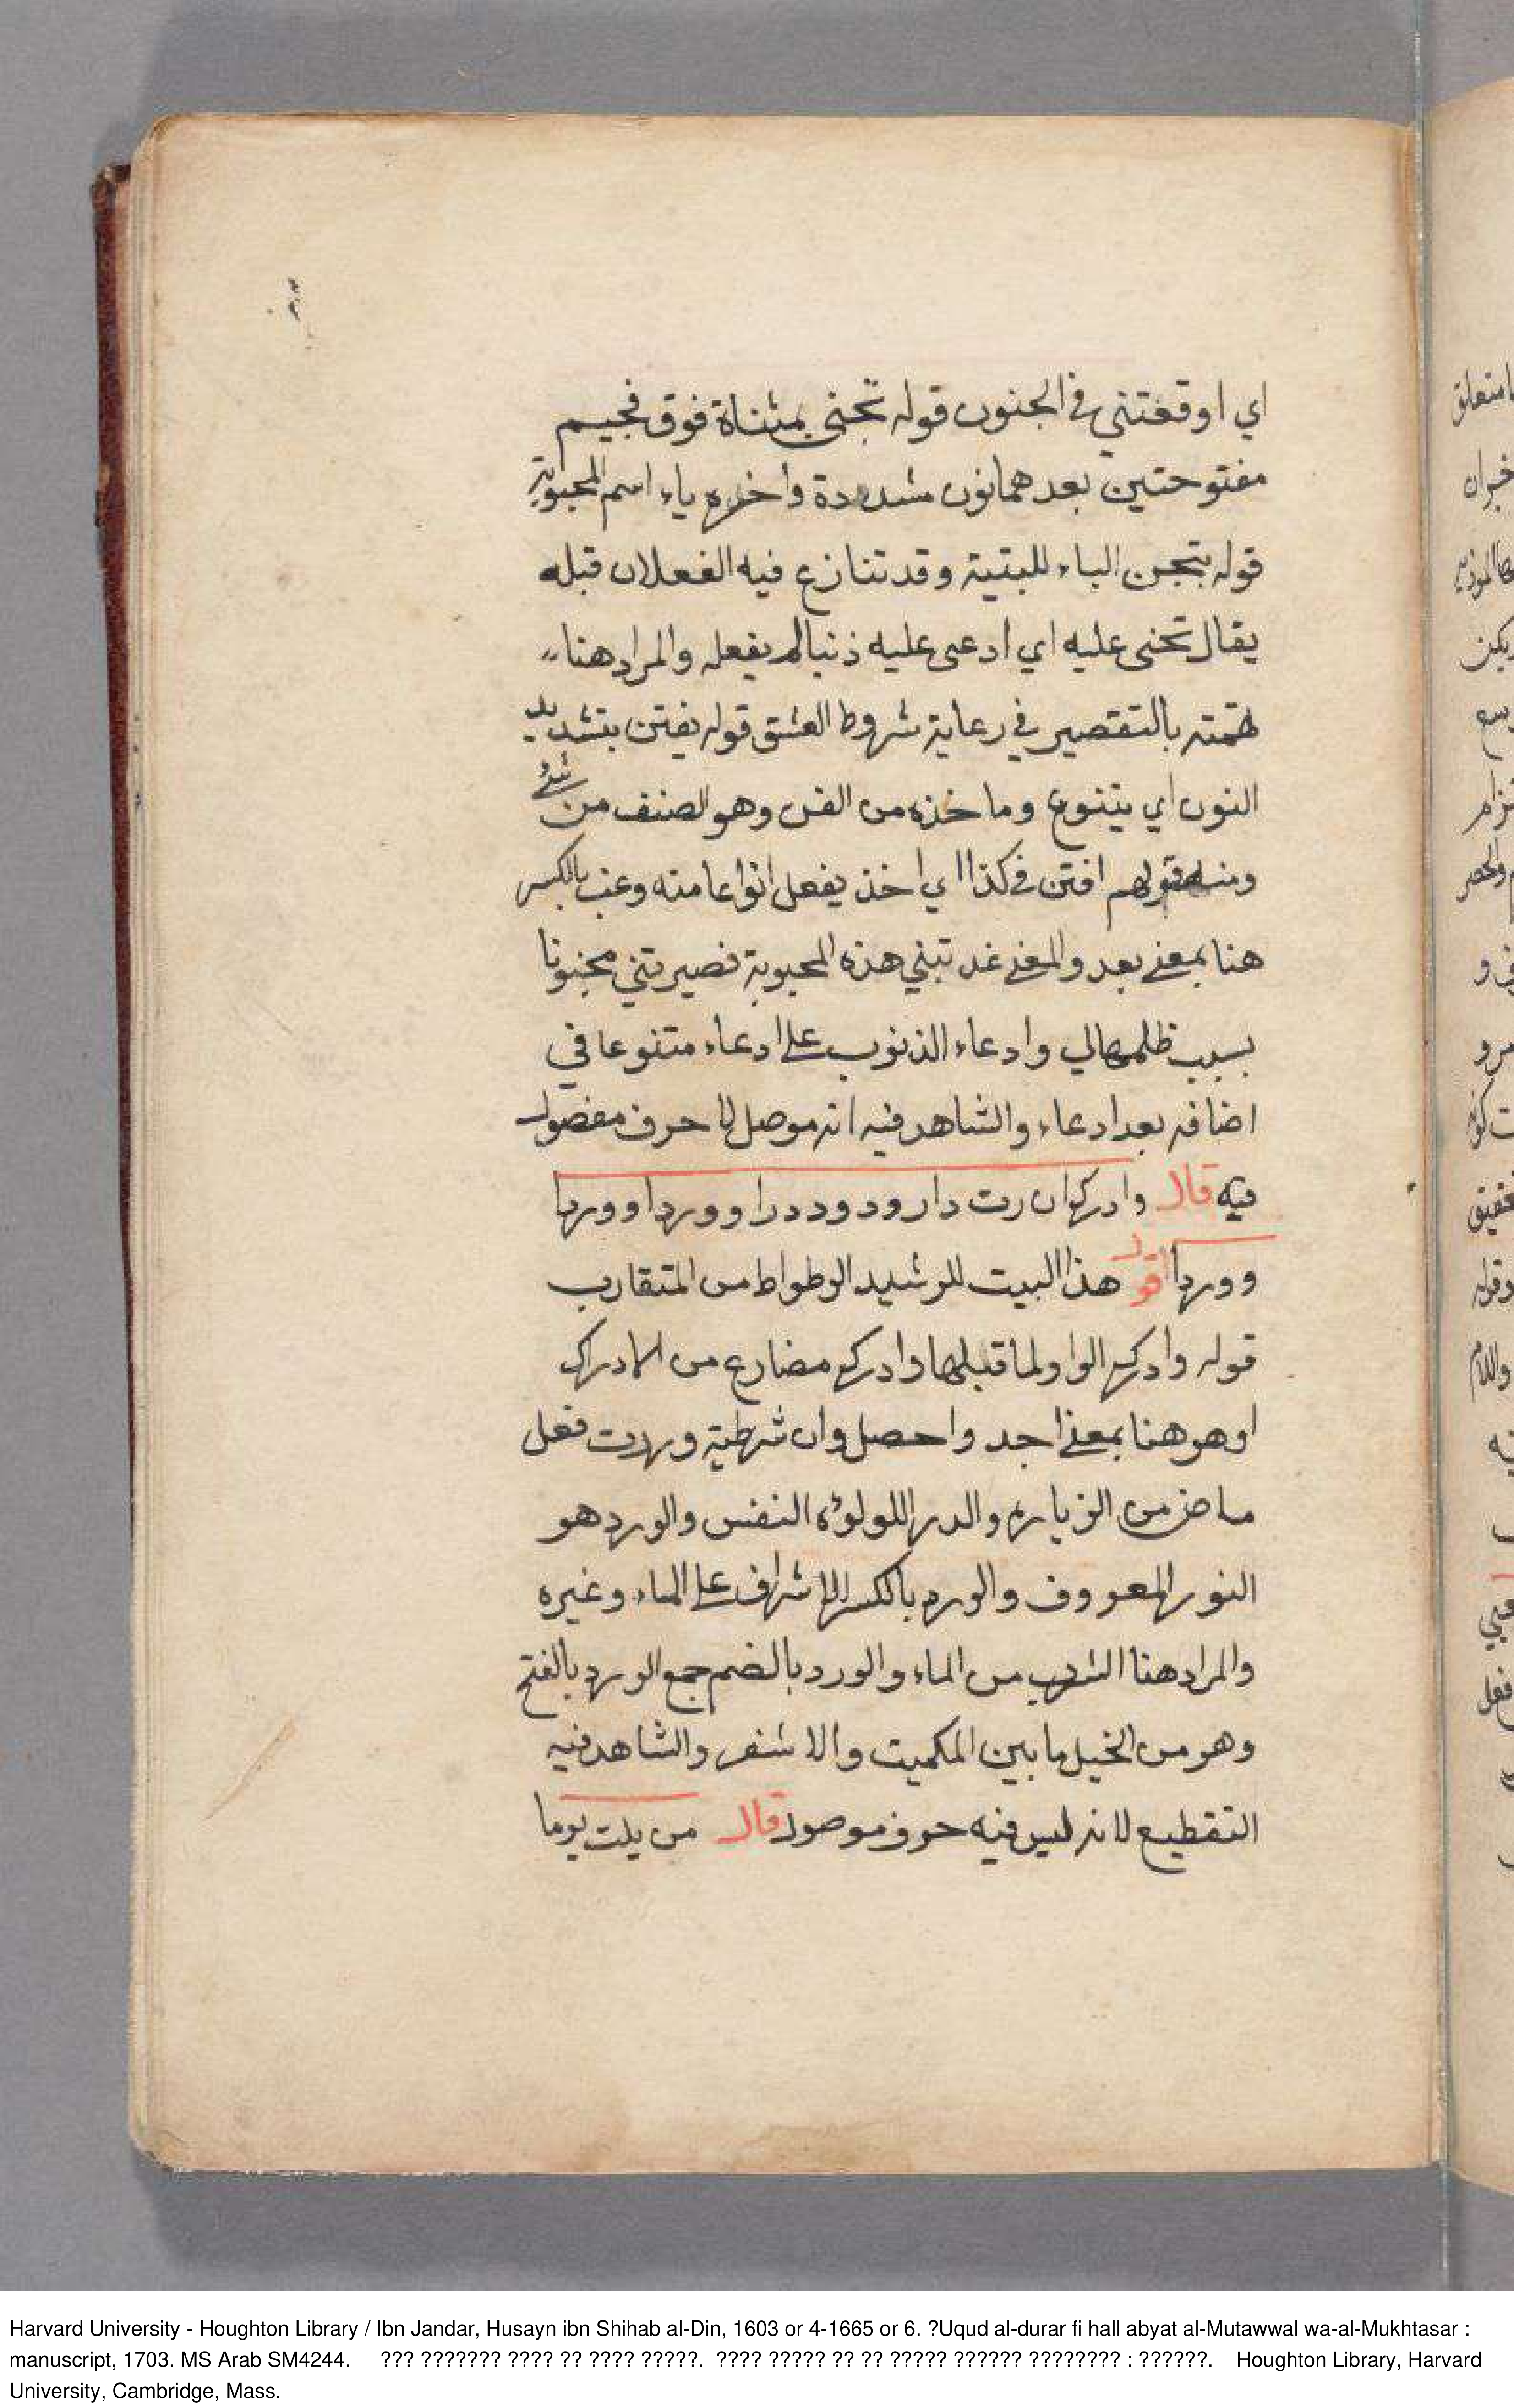 اي اوقعتني في الجنون قوله تجنى بمثناة فوق فجيم
مفتوحتين بعدهما نون مشددة واخره ياء اسم المحبوبة
قوله بتجن الباء للببية وقد تنازع فيه الفعلان قبله
يقال تجنى عليه اي ادعى عليه ذنبا لم يفعله والمراد هنا
بالتقصير في رعاية شروط العشق قوله يفتن بتشديد
النون اي يتنوع وماخذه من الفن وهو الصنف من شئ
ومنه قولهم افتن في كذا اي اخذ يفعل انواعا منه وعب بالكسر
هنا بمعنى بعد والمعنى عذبتني هذه المحبوبة فصيرتني مجنونا
بسبب ظلمها لي وادعاء الذنوب علي ادعاء متنوعا في
اضافه بعد ادعاء والشاهد فيه انه موصل لا حرف مفصول
فيه قال وادرك ان رت دار ودود درا ووردا ووردا
ووردا اقول هذا البيت للرشيد الوطواط من المتقارب
قوله وادرك الواو لما قبلها وادرك مضارع من الادراك
اوهو هنا بمعنى اجد واحصل وان شرطية وررت فعل
ماض من الزيارة والدر اللولوء النفس والورد هو
النور المعروف والورد بالكسر الاشراف على الماء وغيره
والمراد هنا الشرب من الماء والورد بالضم جمع الورد بالفتح
وهو من الخيل ما بين الكميت والاشقر والشاهد فيه
التقطيع لانه ليس فيه حرف موصول قال من يلت يوما
Harvard University - Houghton Library / Ibn Jandar, Husayn ibn Shihab al-Din, 1603 or 4-1665 or 6. ?Uqud al-durar fi hall abyat al-Mutawwal wa-al-Mukhtasar :
manuscript, 1703. MS Arab SM4244. ??? ??????? ???? ?? ???? ?????. ???? ????? ?? ?? ????? ?????? ???????? : ??????. Houghton Library, Harvard
University, Cambridge, Mass.